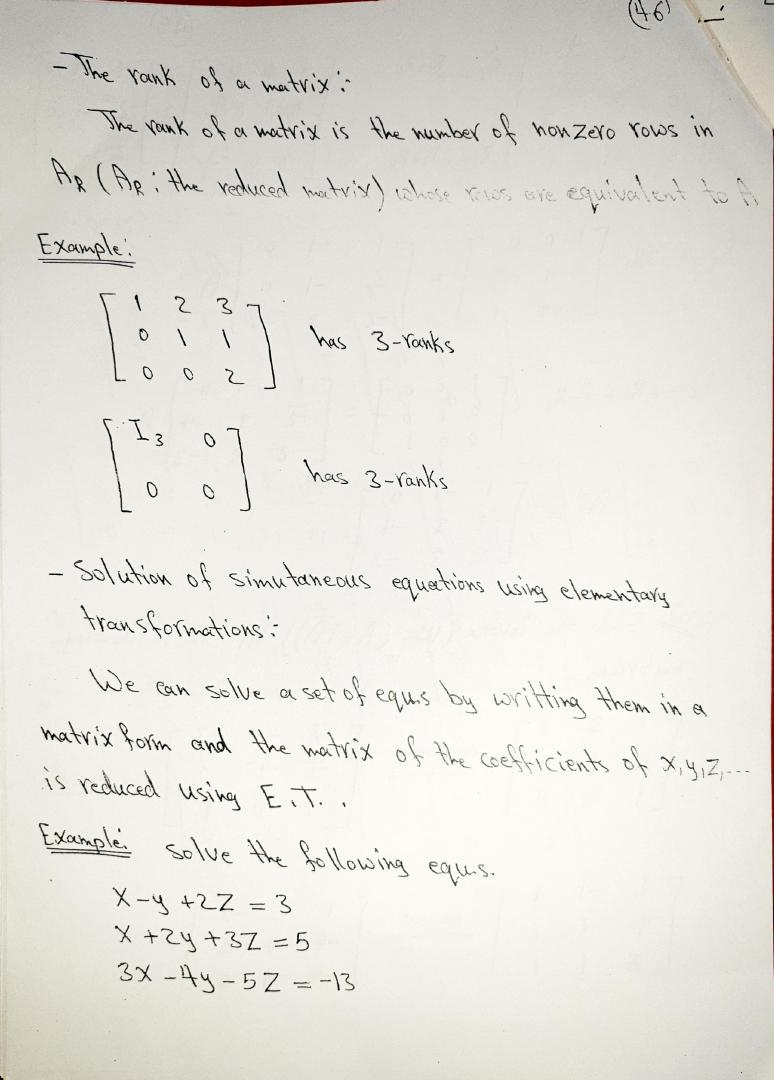 (46)
- The rank of a matrix :-
The rank of a matrix is the number of nonzero rows in
AR (AR : the reduced matrix) whose rows are equivalent to A
Example:
1 2 3
0 1 1 has 3-ranks
0 0 2
I3 0
has 3-ranks
0 0
- Solution of simutaneous equations using elementary
transformations :-
We can solve a set of equs by writting them in a
matrix form and the matrix of the coefficients of x,y,z,...
is reduced using E.T. .
Example: solve the following equs.
X - y + 2Z = 3
X + 2y + 3Z = 5
3X - 4y - 5Z = -13